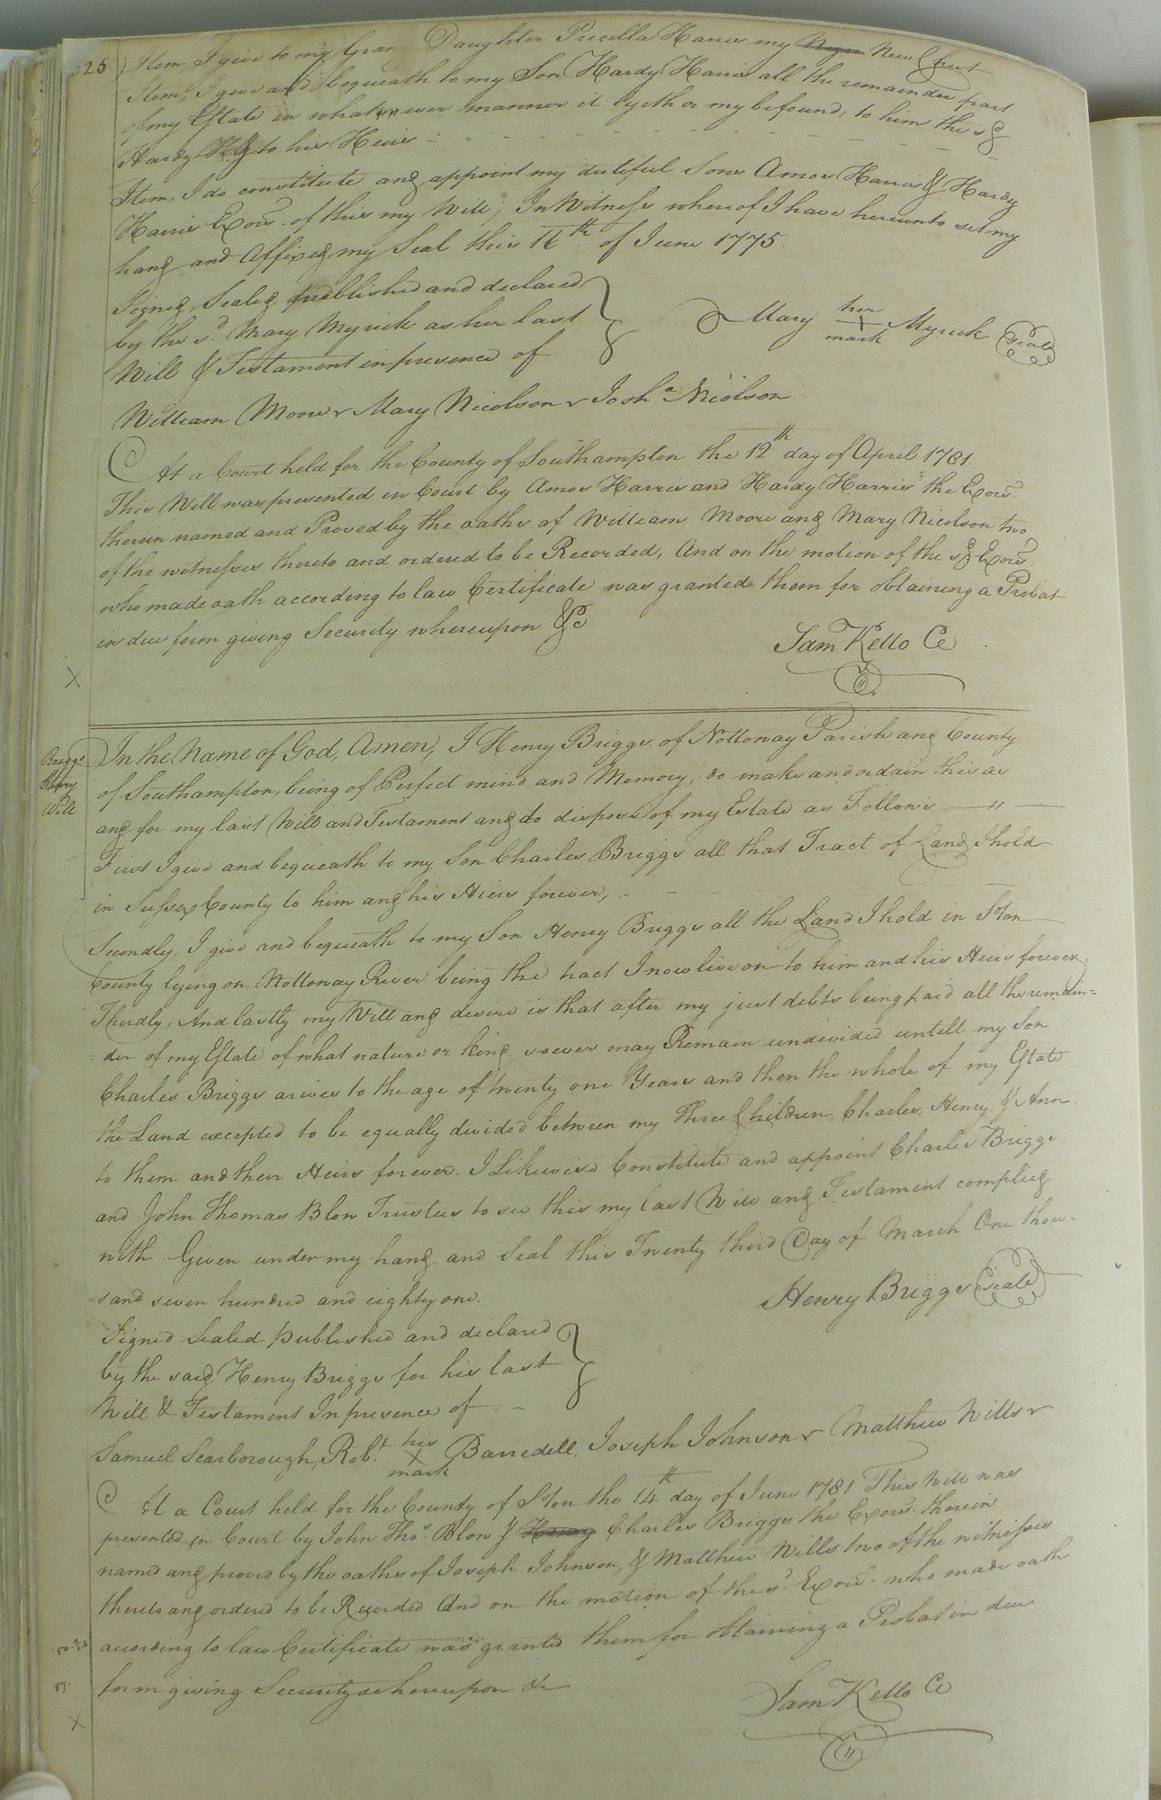 325
Item, I give to my Gran Daughter Precella Harris my Negro New Chest
Item, I give and bequeath to my Son Hardy Harris all the remainder part
of my Estate in whatsoever manner it Lyeth or my be found, to him the sd
Hardy H & to his Heirs -
Item, I do constitute and appoint my duteful Sons Amos Harris & Hardy
Harris Exors. of this my Will, In Witness whereof I have hereunto set my
hand and Affixed my Seal this 16th of June 1775.
Signed, Sealed published and declared
by the sd. Mary Myrick as her last
Will & Testament in presence of
Mary her X mark Myrick Seal
William Moore Mary Nicolson Josha. Nicolson
At a Court held for the County of Southampton the 12th day of April 1781.
This Will was presented in Court by Amos Harris and Hardy Harris the Exors.
therein named and Proved by the oaths of William Moore and Mary Nicolson two
of the witnesses thereto and ordered to be Recorded, And on the motion of the sd Exors.
who made oath according to law Certificate was granted them for obtaining a Probat
in due form giving Security whereupon &c
Sam Kello Cc
X
Briggs
Henry
Will
In the Name of God, Amen, I Henry Briggs of Nottoway Parish and County
of Southampton, being of Perfect mind and Memory, do make and ordain this as
and for my last Will and Testament and do dispose of my Estate as Follows
First I give and bequeath to my Son Charles Briggs all that Tract of Land I hold
in Sussex County to him and his Heirs forever,
Secondly, I give and bequeath to my Son Henry Briggs all the Land I hold in S°ton
County lying on Nottoway River being the tract I now live on to him and his Heirs forever
Thirdly, And lastly my Will and desire is that after my just debts being paid all the remain=
=der of my Estate of what nature or kind soever may Remain undivided untill my Son
Charles Briggs arives to the age of twenty one Years and then the whole of my Estate
the Land excepted to be equally divided between my three Children, Charles, Henry, & Ann
to them and their Heirs forever. I Likewise Constitute and appoint Charles Briggs
and John Thomas Blow Trustees to see this my last Will and Testament complied
with Given under my hand and Seal this Twenty third Day of March One thou-
=sand seven hundred and eighty one.
Henry Briggs Seal
Signed Sealed published and declared
by the said Henry Briggs for his last
Will & Testament In presence of
Samuel Scarborough, Robt. his X mark Barredell, Joseph Johnson Matthew Wills
At a Court held for the County of S°ton the 14th day of June 1781 This Will was
presented in Court by John Thos. Blow & Henry Charles Briggs the Exors. therein
named and proved by the oaths of Joseph Johnson, & Matthew Wills two of the witnesses
thereto and ordered to be Recorded And on the motion of the sd. Exors. who made oath
according to law Certificate was granted them for obtaining a Probat in due
form giving Security whereupon &c
Sam Kello Cc
X